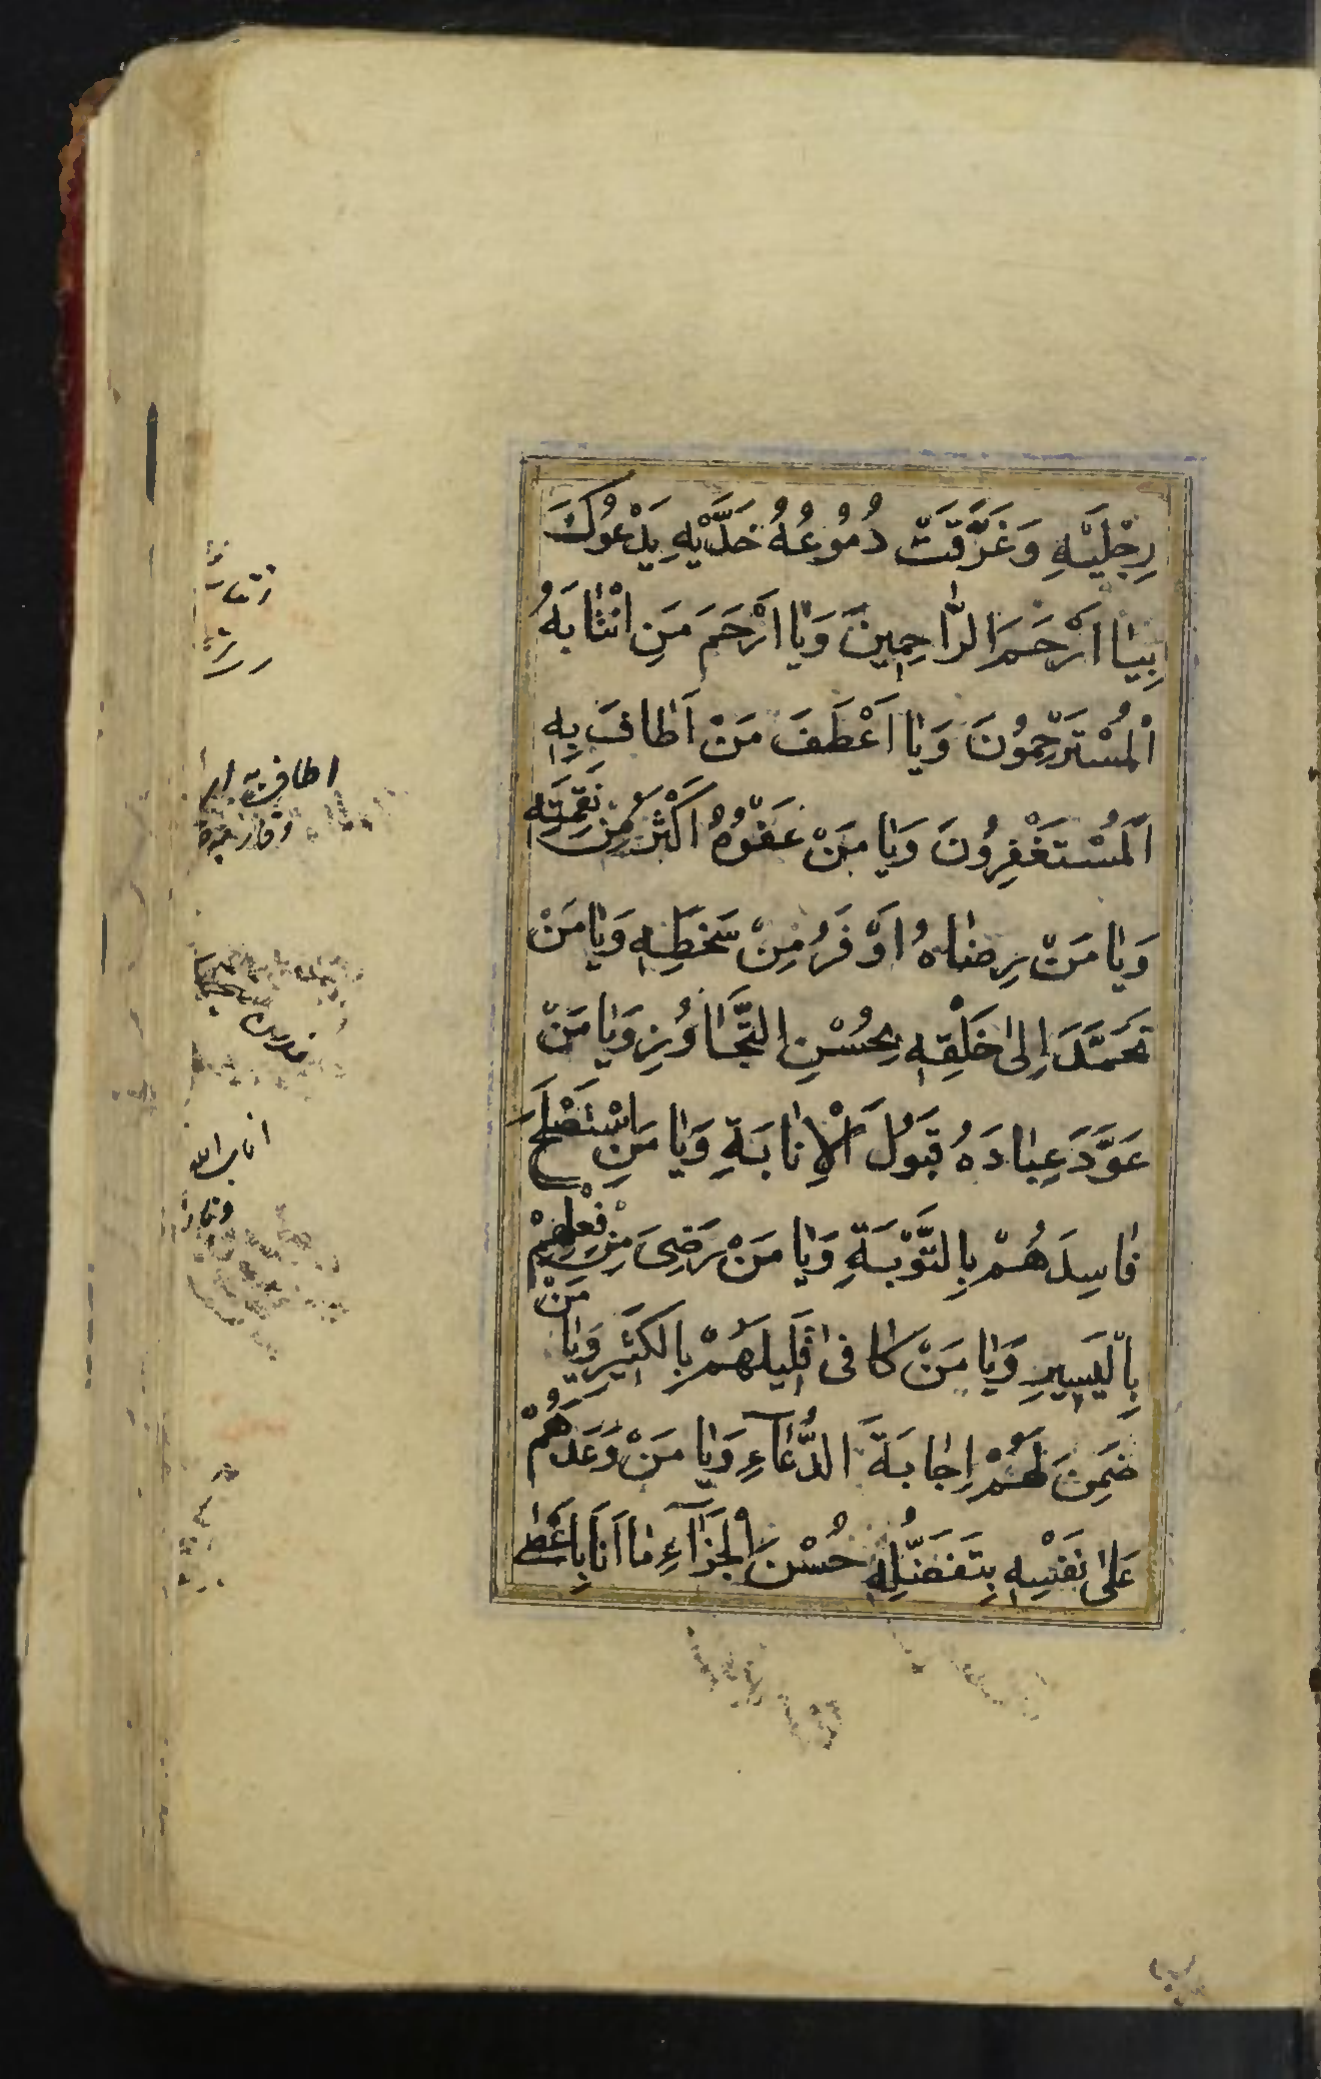 رِجْلَيْهِ وَغَرَّقَتْ دُمُوعُهُ خَدَّيْهِ يَدْعُوكَ
بِيٰا اَرْحَمَ الرّٰاحِمِينَ وَيٰا اَرْحَمَ مَنِ انْتٰابَهُ
الْمُسْتَرْحِمُونَ وَيٰا اَعْطَفَ مَنْ اَطٰافَ بِهِ
الْمُسْتَغْفِرُونَ وَيٰا مَنْ عَفْوُهُ اَكْثَرُ مِنْ نَقِمَتِهِ
وَيٰا مَنْ رِضٰاهُ اَوْفَرُ مِنْ سَخَطِهِ وَيٰا مَنْ
تَحَمَّدَ اِلىٰ خَلْقِهِ بِحُسْنِ التَّجٰاوُزِ وَيٰا مَنْ
عَوَّدَ عِبٰادَهُ قَبُولَ الْاِنٰابَةِ وَيٰا مَنِ اسْتَصْلَحَ
فٰاسِدَهُمْ بِالتَّوْبَةِ وَيٰا مَنْ رَضِىَ مِنْ فِعْلِهِمْ
بِالْيَسِيرِ وَيٰا مَنْ كٰافىٰ قَلِيلَهُمْ بِالْكَثِيرِ وَيٰا مَنْ
ضَمِنَ لَهُمْ اِجٰابَةَ الدُّعٰآءِ وَيٰا مَنْ وَعَدَهُمْ
عَلىٰ نَفْسِهِ بِتَفَضُّلِهِ حُسْنَ الْجَزٰآءِ مٰا اَنَا بِاَعْصٰى
اطاف به
اناب الله